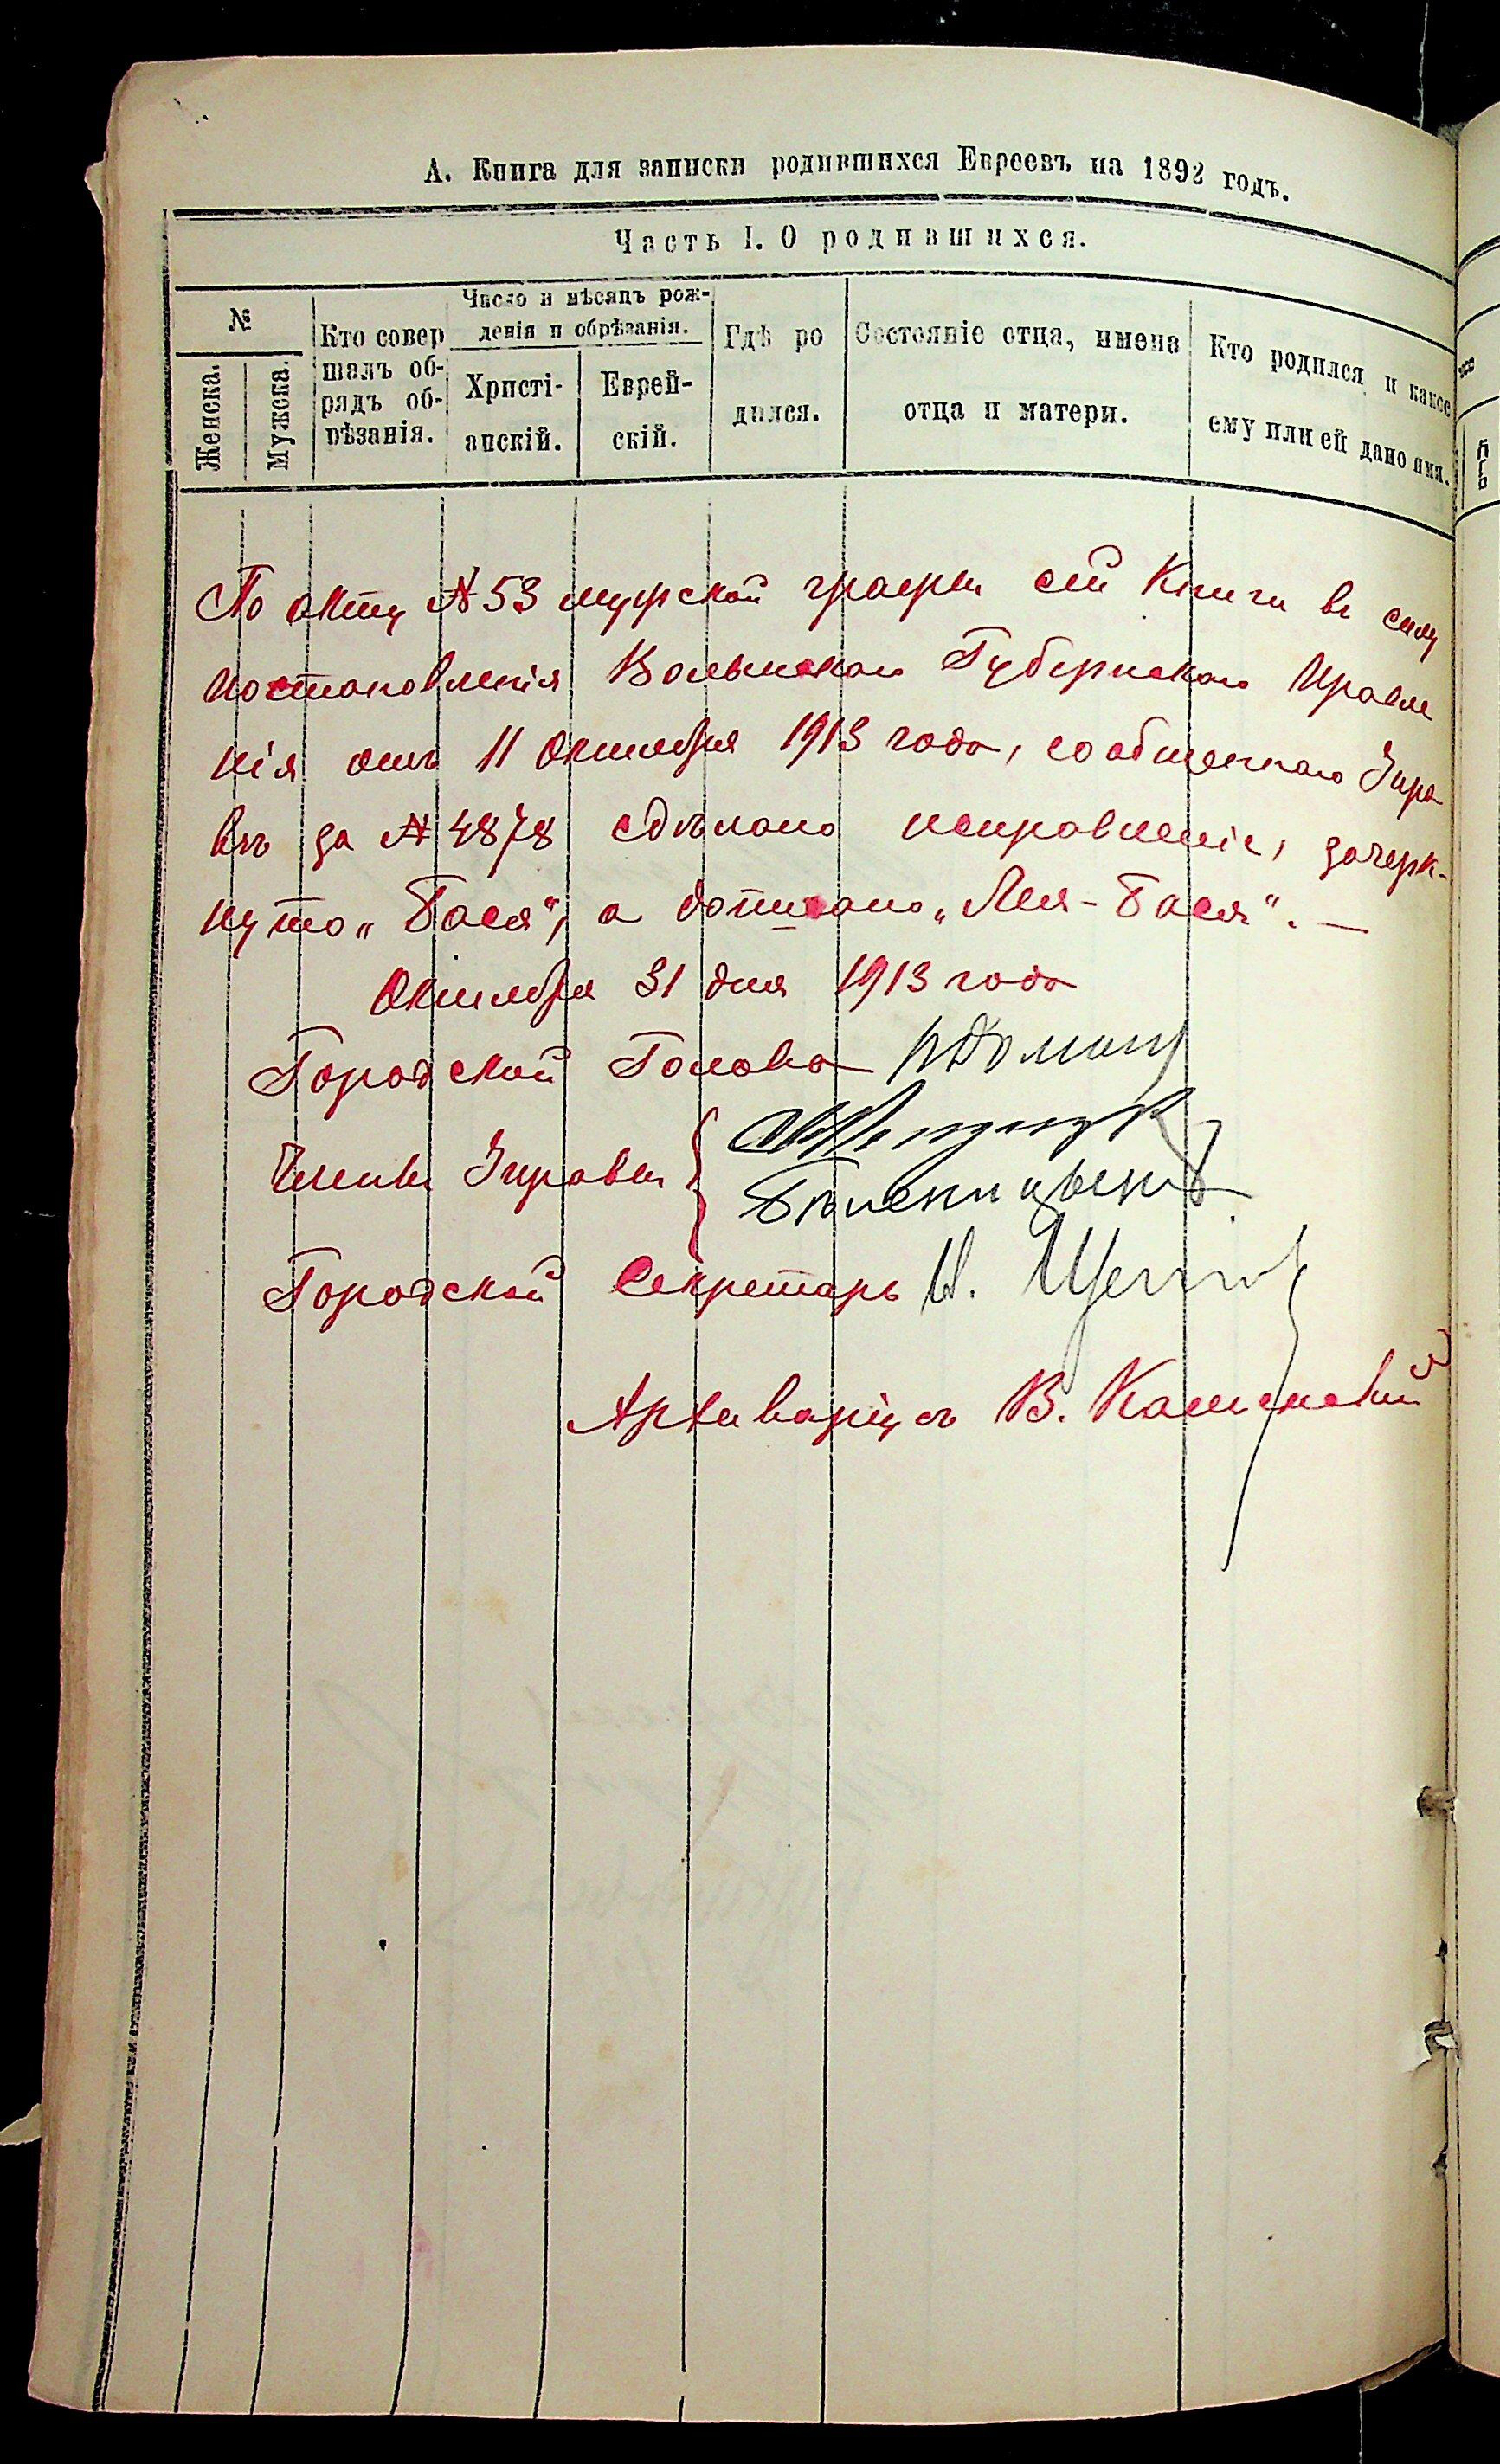 А. Книга для записки родившихся Евреевъ на 1892 годъ.
Часть I. О родившихся.
№
Женска.
Мужска.
Кто совер
шалъ об-
рядъ об-
рѣзанія.
Число и мѣсяцъ рож-
денія и обрѣзанія.
Христі-
анскій.
Еврей-
скій.
Гдѣ ро
дился.
Состояніе отца, имена
отца и матери.
Кто родился и какое
ему или ей дано имя.
По акту №53 мужской графы сей Книги въ силу
постановленія Волынскаго Губернскаго Правле
нія отъ 11 Октября 1913 года, сообщеннаго Упра
вѣ за № 4878 сдѣлано исправленіе, зачерк-
нуто „Бася", а дописано „Лея-Бася". —
Октября 31 дня 1913 года
Городской Голова
Члены Управы
Городской Секретарь Н.
Архиваріусъ В. Каменскій